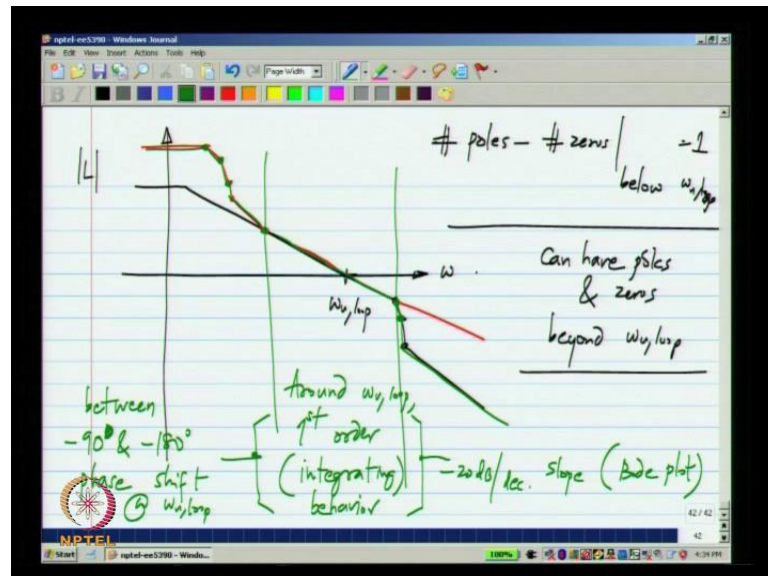 nptel-ee5390 - Windows Journal
File Edit View Insert Actions Tools Help
Page Width
B I
|L|
# poles - # zeros | = 1
below ωu,loop
Can have poles
& zeros
beyond ωu,loop
ω
ωu,loop
between
-90° & -180°
phase shift
@ ωu,loop
Around ωu,loop,
1st order
(integrating)
behavior
-20 dB/dec. slope (Bode plot)
NPTEL
42 / 42
42
Start
nptel-ee5390 - Windo...
100%
4:34 PM